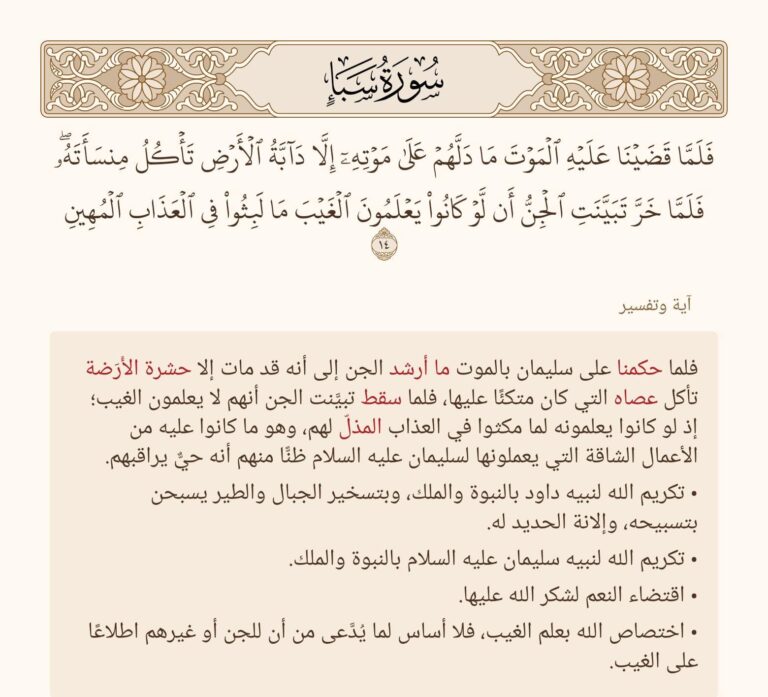 سُورَةُ سَبَإٍ
فَلَمَّا قَضَيْنَا عَلَيْهِ ٱلْمَوْتَ مَا دَلَّهُمْ عَلَىٰ مَوْتِهِۦٓ إِلَّا دَآبَّةُ ٱلْأَرْضِ تَأْكُلُ مِنسَأَتَهُۥۖ
فَلَمَّا خَرَّ تَبَيَّنَتِ ٱلْجِنُّ أَن لَّوْ كَانُوا۟ يَعْلَمُونَ ٱلْغَيْبَ مَا لَبِثُوا۟ فِى ٱلْعَذَابِ ٱلْمُهِينِ
١٤
آية وتفسير
فلما حكمنا على سليمان بالموت ما أرشد الجن إلى أنه قد مات إلا حشرة الأرَضة
تأكل عصاه التي كان متكئًا عليها، فلما سقط تبيَّنت الجن أنهم لا يعلمون الغيب؛
إذ لو كانوا يعلمونه لما مكثوا في العذاب المذلّ لهم، وهو ما كانوا عليه من
الأعمال الشاقة التي يعملونها لسليمان عليه السلام ظنًّا منهم أنه حيٌّ يراقبهم.
• تكريم الله لنبيه داود بالنبوة والملك، وبتسخير الجبال والطير يسبحن
بتسبيحه، وإلانة الحديد له.
• تكريم الله لنبيه سليمان عليه السلام بالنبوة والملك.
• اقتضاء النعم لشكر الله عليها.
• اختصاص الله بعلم الغيب، فلا أساس لما يُدَّعى من أن للجن أو غيرهم اطلاعًا
على الغيب.